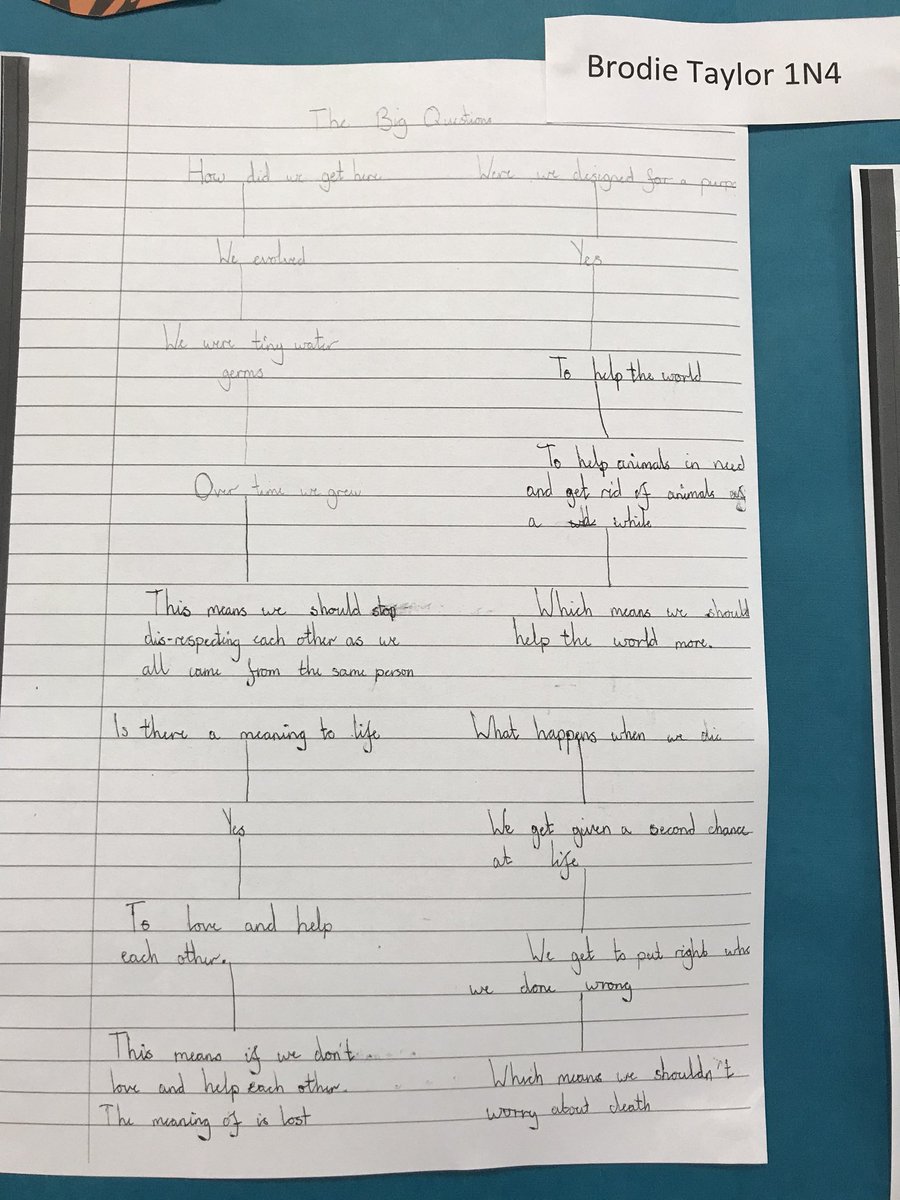 Brodie Taylor 1N4
The Big Questions
How did we get here
We evolved
We were tiny water
germs
Over time we grew
This means we should stop
dis-respecting each other as we
all came from the same person
Were we designed for a
Yes
To help the world
To help animals in need
and get rid of animals
a while
Which means we should
help the world more.
Is there a meaning to life
Yes
To love and help
each other.
This means if we don't
love and help each other.
The meaning of is lost
What happens when we die
We get given a second chance
at life
We get to put right
we done wrong
Which means we shouldn't
worry about death